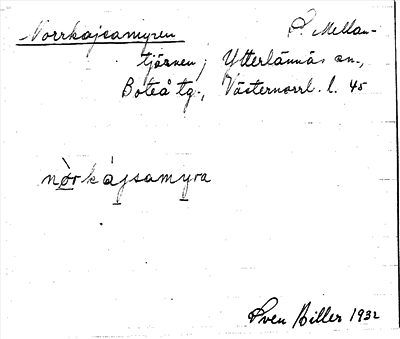 Norrkajsamyren P. Mellan-
tjärnen, Ytterlännäs sn.,
Boteå tg., Västernorrl. l. 45
nòrkájsamyra
Sven Biller 1932